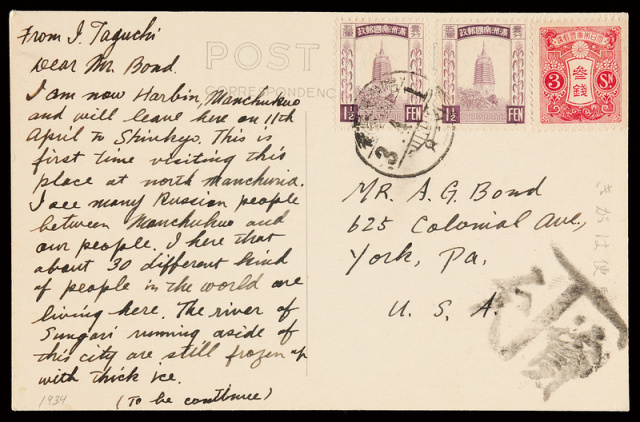 From I. Taguchi
Dear Mr. Bond.
I am now Harbin, Manchukuo
and will leave here on 11th
April to Shinkyo. This is
first time visiting this
place at north manchuria.
I see many Russian people
between Manchukuo and
our people. I here that
about 30 different kind
of people in the world are
living here. The river of
Sungari running aside of
this city are still frozen up
with thick ice.
(To be continue)
1934
POST
CORRESPONDENCE
滿洲國郵政
1½ FEN
滿洲國郵政
1½ FEN
3 叁錢 Sn.
MR. A.G. Bond
625 Colonial Ave,
York, Pa.
U. S. A.
きがは便